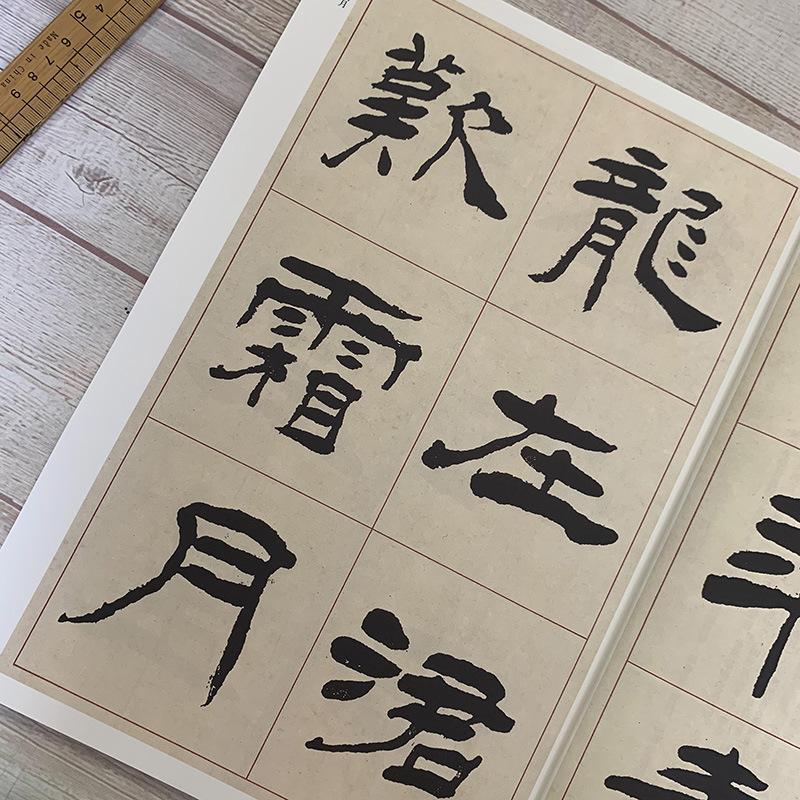 龍在涒
歎霜月
月
4 5 6 7 8 9
Made in China